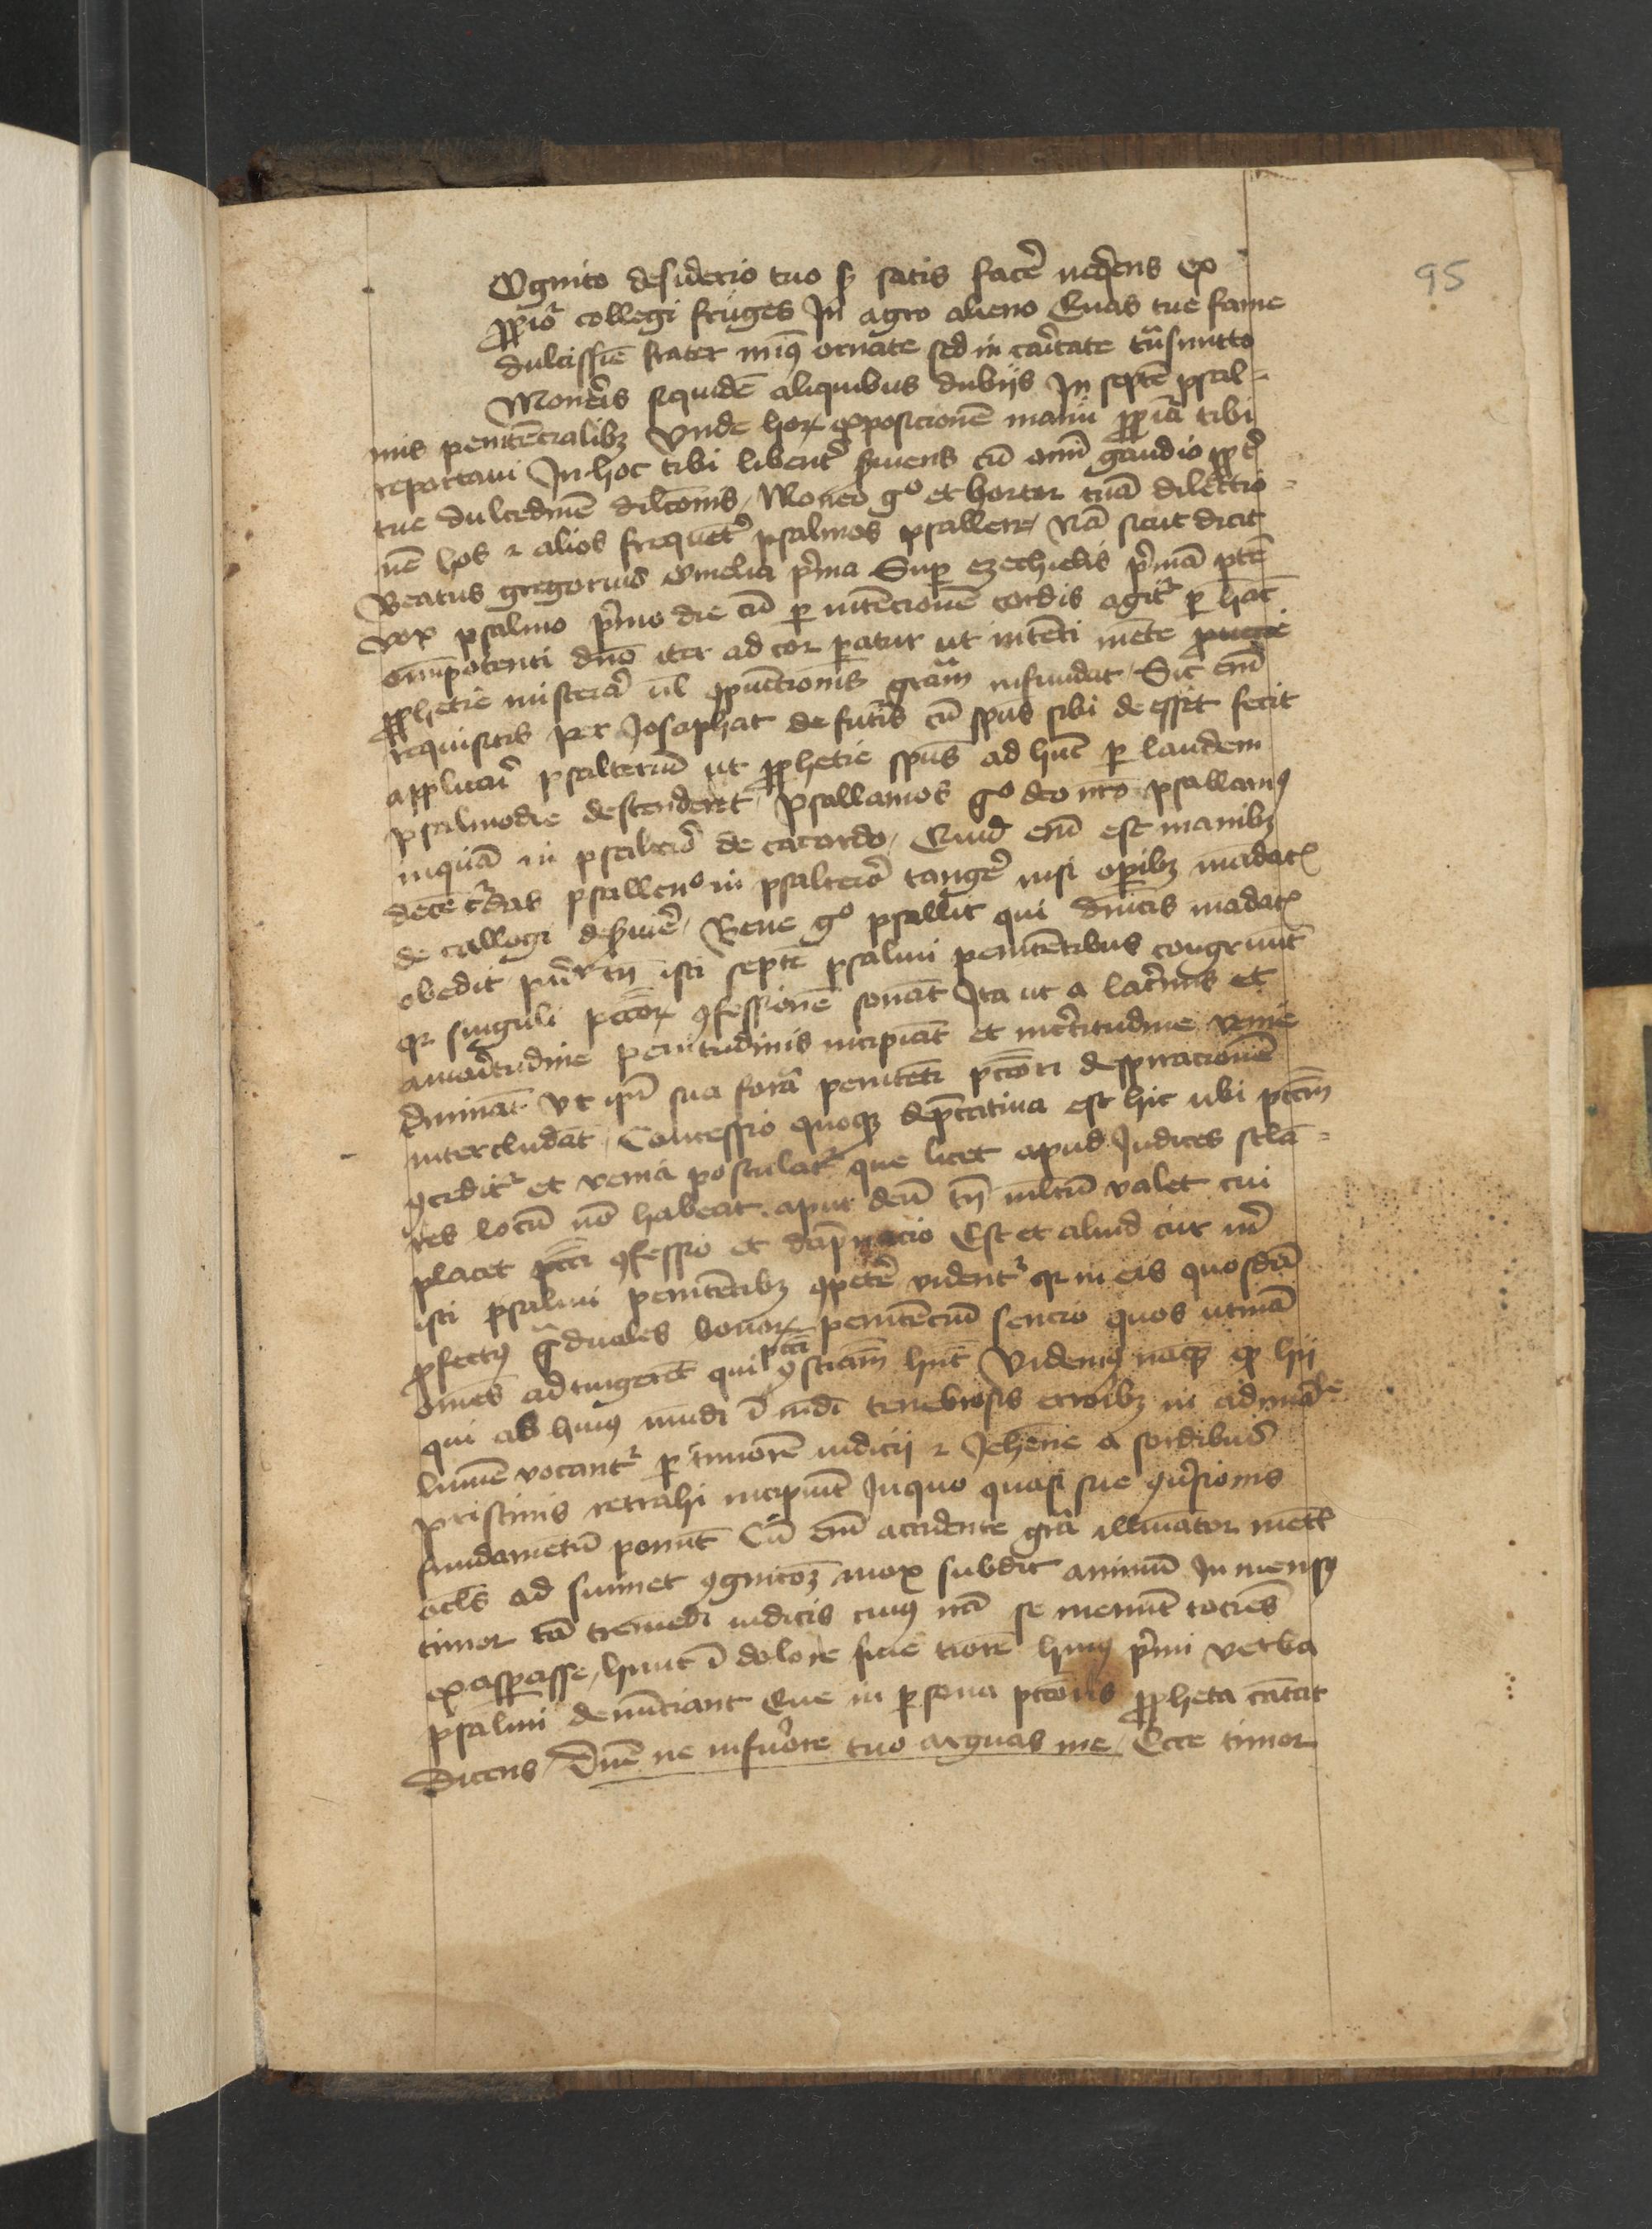 95
Ognito desiderio tuo sz satis facere nequiens ex
proprio collegi fruges In agro alieno Quas tue fame
dulcissime frater minus ornate sed in caritate transmitto
Moneris siquidem aliquibus dubijs In septem psal-
mis penitencialibus Vnde horum exposicionem manu propria tibi
reportaui In hoc tibi libenter seruiens cum omni gaudio propter
tue dulcedinem dilectionis / Moneo ergo et hortor tuam dilectio-
nem hos et alios frequenter psalmos psallere / Nam sicut dicit
Beatus gregorius Omelia prima Super ezechielis primam partem
vox psalmo primo die cum per intencionem cordis agitur per hanc
omnipotenti domino iter ad cor paratur ut intenti mente
prophetie misteria uel compunctionis gratiam infundat / Sic enim
requisitis per Josaphat de futuris cum spiritus sibi deesset fecit
applicari psalterium ut prophetie spiritus ad hunc per laudem
psalmodie descenderet / Psallamos ergo deo nostro psallamus
inquam in psalterio decacordo / Quid enim est manibus
psallendo in psalterio tangere nisi operibus mandatis
decallogi deseruire / Bene ergo psallit qui diuinis mandatis
obedit tamen isti septem psalmi penitentibus congruunt
quia singuli peccatorum confessionem sonant Ita ut a lacrimis et
amaritudine penitudinis incipiant et incertitudine venie
terminant Vt sua forma penitenti peccatori desperacionem
intercludant / Concessio quoque deprecatiua est hic ubi peccatum
conceditur et venia postulatur que licet apud Judices secula-
res locum non habeat aput deum tamen multum valet cui
placet peccati confessio et deprecacio Est et aliud cur
isti psalmi penitentibus competere videntur quia in eis quosdam
profectus graduales bonorum penitencium sencio quos utinam
omnes adtingerent qui peccati conscienciam habent Videmus namque quod hii
qui ab huius mundi tenebrosis erroribus in admirabile
lumen vocantur per timorem iudicii et Jehenne a sordibus
pristinis retrahi incipiunt In quo quasi sue conuersionis
fundamentum ponunt Cum enim accidente gratia illuminator mentis
oculis ad suimet cognicionem mox subdit animum In mensus
timor tam tremendi iudicis cuius iram se meminit tociens
exasperasse / hunc in dolore siue timore huius primi verba
psalmi denunciant Que in persona peccatoris propheta cantat
Dicens / Domine ne in furore tuo arguas me / Ecce timor